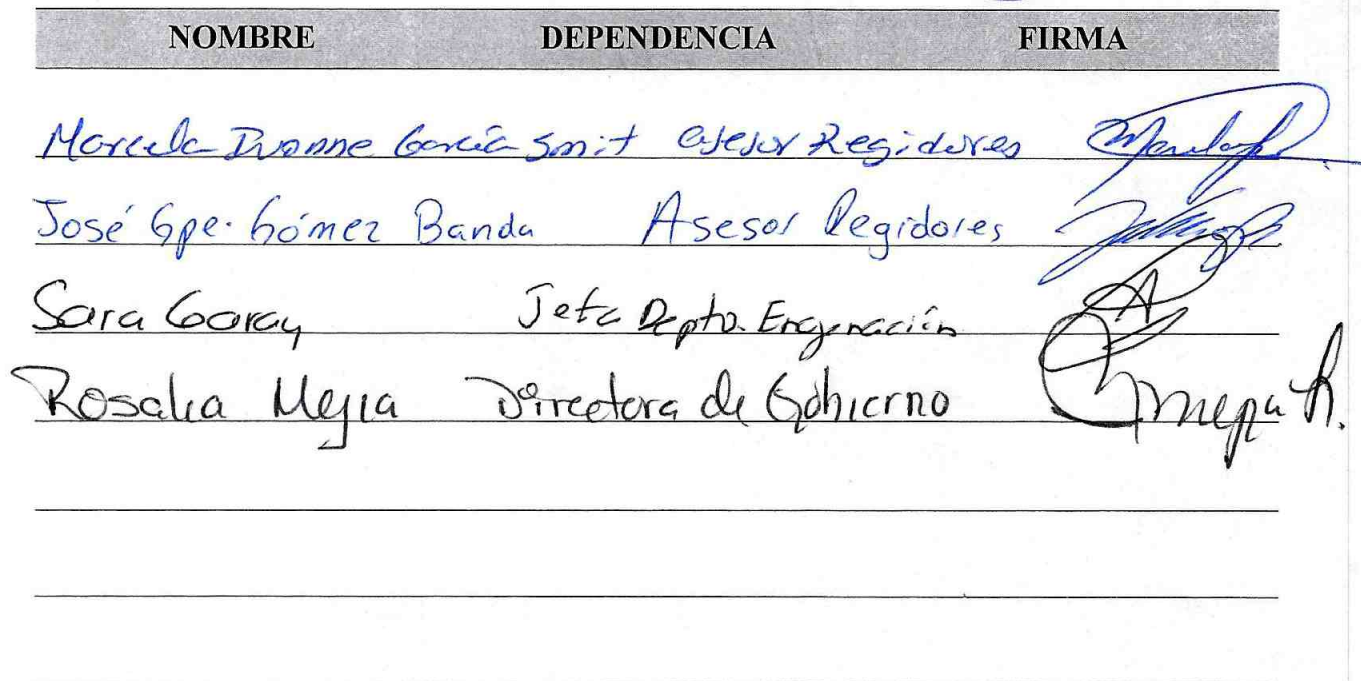 NOMBRE DEPENDENCIA FIRMA
Marcela Ivonne García Smit asesor Regidores
José Gpe. Gómez Banda Asesor Regidores
Sara Garay Jefa Depto. Enajenación
Rosalia Mejia Directora de Gobierno